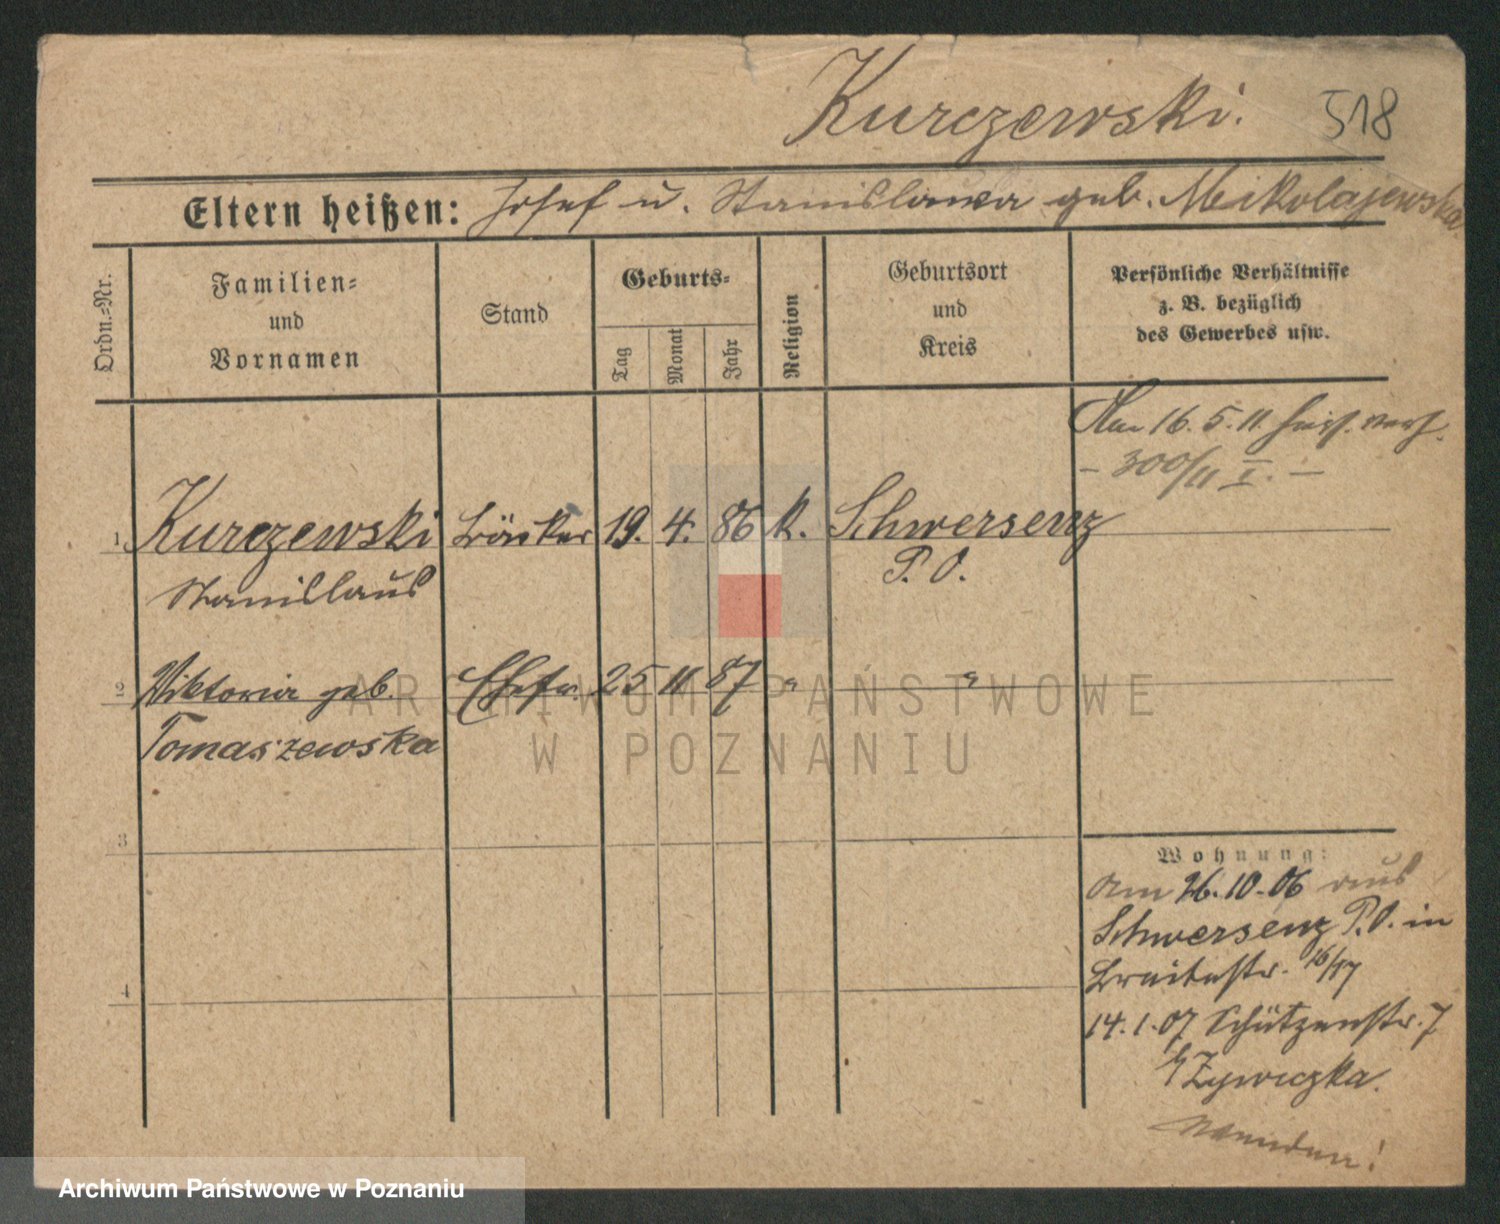 Kurczewski.
518
Eltern heißen: Josef u. Stanislawa geb. Mikolajewska.
Ordn.-Nr.
Familien-
und
Vornamen
Stand
Geburts-
Tag
Monat
Jahr
Religion
Geburtsort
und
Kreis
Persönliche Verhältnisse
z. B. bezüglich
des Gewerbes usw.
Am 16.5.11
- 300/11 I. -
1 Kurczewski Bäcker 19. 4. 86 k. Schwersenz
Stanislaus P. O.
2 Viktoria geb. Ehefr. 25 11 87 " "
Tomaszewska
3
4
Wohnung:
Am 26.10.06 aus
Schwersenz P.O. in
Breitestr. 16/17
14.1.07 Schützenstr. 7
b/ Zywiczka.
ARCHIWUM PAŃSTWOWE
W POZNANIU
Archiwum Państwowe w Poznaniu